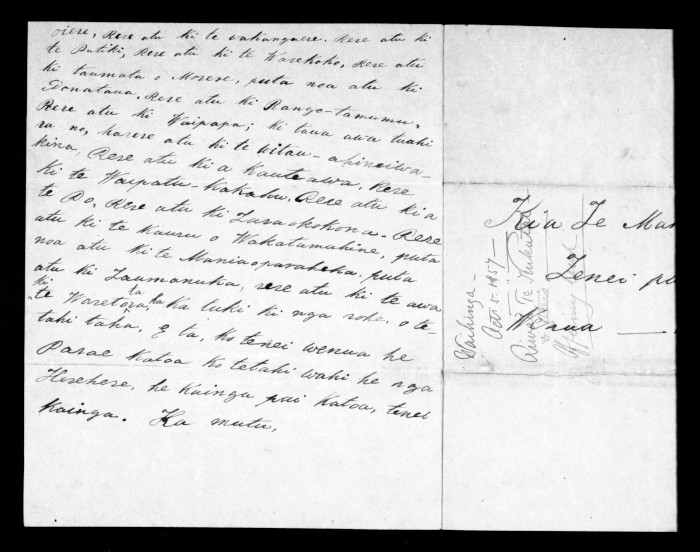 oiere, Rere atu ki te wakanguere. Rere atu ki
te Putiki, Rere atu ki te Warekoho, Rere atu
ki taumata o Morere, puta noa atu ki
Tonataua, Rere atu ki Rango-tamumu,
Rere atu ki Waipapa; ki taua awa tuahi
ra no, harere atu ki te witau-apineiwa-
kina, Rere atu ki a Kauteawa, Rere
ki te Waipatu-Kakahu, Rere atu ki a
te Po, Rere atu ki Taraokokona-Rere
atu ki te Kauru o Wakatumuhine, puta
noa atu ki te Maniaoparaheka, puta
atu ki Taumanuka, rere atu ki te awa
ki te Waretoa, ka tuki ki nga rohe, o te-
tahi taha, E ta, ko tenei wenua he
Parae katoa ko tetahi wahi he nga
Herehere, he Kainga pai Katoa, tenei
kainga. Ka mutu,
Kia Te Ma
Tenei pu
Maua
Waihinga-
Octr. 5. 1857-
Te